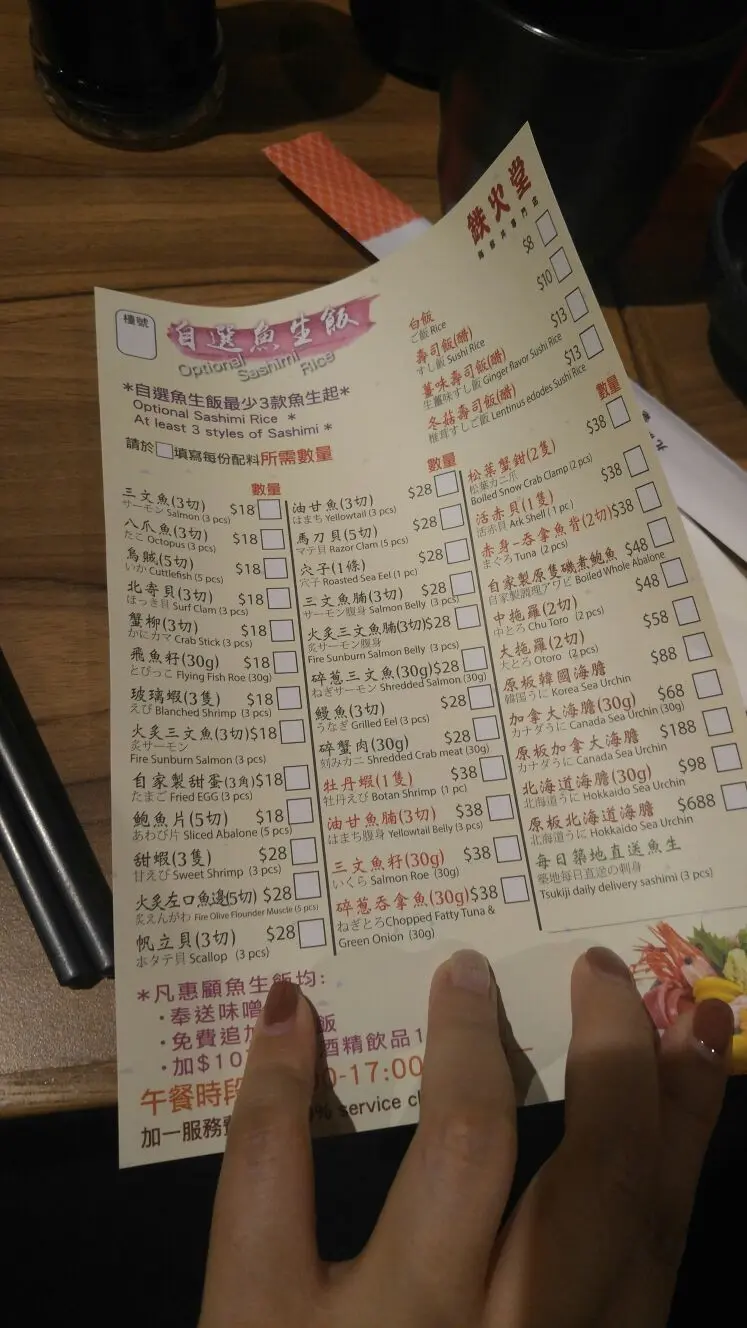 鉄火堂
檯號
自選魚生飯
Optional Sashimi Rice
*自選魚生飯最少3款魚生起*
Optional Sashimi Rice *
At least 3 styles of Sashimi *
請於□填寫每份配料所需數量
白飯 $8
ご飯 Rice
壽司飯(醋) $10
すし飯 Sushi Rice
薑味壽司飯(醋) $13
生薑味すし飯 Ginger flavor Sushi Rice
冬菇壽司飯(醋) $13
椎茸すしご飯 Lentinus edodes Sushi Rice
數量
三文魚(3切) $18
サーモン Salmon (3 pcs)
八爪魚(3切) $18
たこ Octopus (3 pcs)
烏賊(5切) $18
いか Cuttlefish (5 pcs)
北寄貝(3切) $18
ほっき貝 Surf Clam (3 pcs)
蟹柳(3切) $18
かにカマ Crab Stick (3 pcs)
飛魚籽(30g) $18
とびっこ Flying Fish Roe (30g)
玻璃蝦(3隻) $18
えび Blanched Shrimp (3 pcs)
火炙三文魚(3切) $18
炙サーモン
Fire Sunburn Salmon (3 pcs)
自家製甜蛋(3角) $18
たまご Fried EGG (3 pcs)
鮑魚片(5切) $18
あわび片 Sliced Abalone (5 pcs)
甜蝦(3隻) $28
甘えび Sweet Shrimp (3 pcs)
火炙左口魚邊(5切) $28
炙えんがわ Fire Olive Flounder Muscle (5 pcs)
帆立貝(3切) $28
ホタテ貝 Scallop (3 pcs)
數量
油甘魚(3切) $28
はまち Yellowtail (3 pcs)
馬刀貝(5切) $28
マテ貝 Razor Clam (5 pcs)
穴子(1條) $28
穴子 Roasted Sea Eel (1 pc)
三文魚腩(3切) $28
サーモン腹身 Salmon Belly (3 pcs)
火炙三文魚腩(3切) $28
炙サーモン腹身
Fire Sunburn Salmon Belly (3 pcs)
碎葱三文魚(30g) $28
ねぎサーモン Shredded Salmon (30g)
鰻魚(3切) $28
うなぎ Grilled Eel (3 pcs)
碎蟹肉(30g) $28
刻みカニ Shredded Crab meat (30g)
牡丹蝦(1隻) $38
牡丹えび Botan Shrimp (1 pc)
油甘魚腩(3切) $38
はまち腹身 Yellowtail Belly (3 pcs)
三文魚籽(30g) $38
いくら Salmon Roe (30g)
碎葱吞拿魚(30g) $38
ねぎとろ Chopped Fatty Tuna &
Green Onion (30g)
數量
松葉蟹鉗(2隻) $38
松葉カニ爪
Boiled Snow Crab Clamp (2 pcs)
活赤貝(1隻) $38
活赤貝 Ark Shell (1 pc)
赤身-吞拿魚背(2切) $38
まぐろ Tuna (2 pcs)
自家製原隻磯煮鮑魚 $48
自家製調理アワビ Boiled Whole Abalone
中拖羅(2切) $48
中とろ Chu Toro (2 pcs)
大拖羅(2切) $58
大とろ Otoro (2 pcs)
原板韓國海膽 $88
韓国うに Korea Sea Urchin
加拿大海膽(30g) $68
カナダうに Canada Sea Urchin (30g)
原板加拿大海膽 $188
カナダうに Canada Sea Urchin
北海道海膽(30g) $98
北海道うに Hokkaido Sea Urchin
原板北海道海膽 $688
北海道うに Hokkaido Sea Urchin
每日築地直送魚生
築地毎日直送の刺身
Tsukiji daily delivery sashimi (3 pcs)
*凡惠顧魚生飯均:
·奉送味噌
·免費追加 飯
·加$10 酒精飲品1
午餐時段 00-17:00
加一服務費 % service